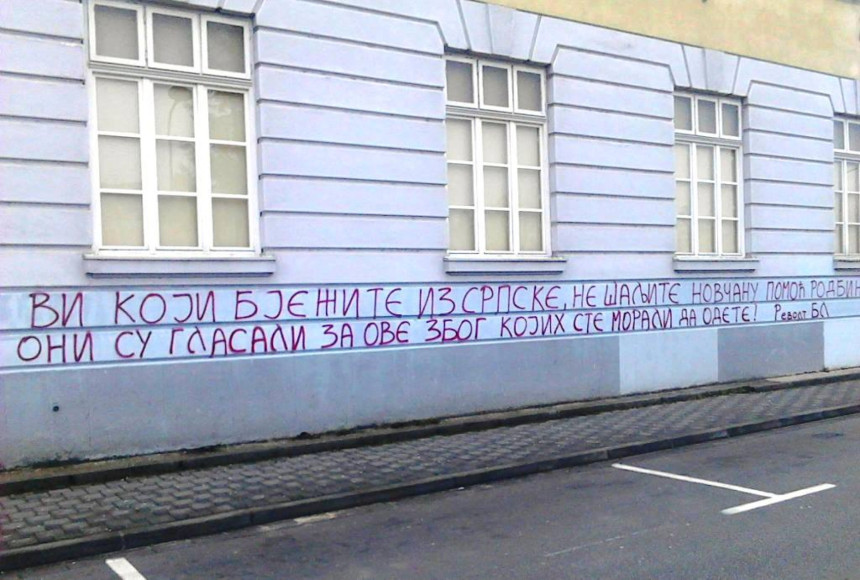 ВИ КОЈИ БЈЕЖИТЕ ИЗ СРПСКЕ, НЕ ШАЉИТЕ НОВЧАНУ ПОМОЋ
ОНИ СУ ГЛАСАЛИ ЗА ОВЕ ЗБОГ КОЈИХ СТЕ МОРАЛИ ДА ОДЕТЕ! Револт БЛ